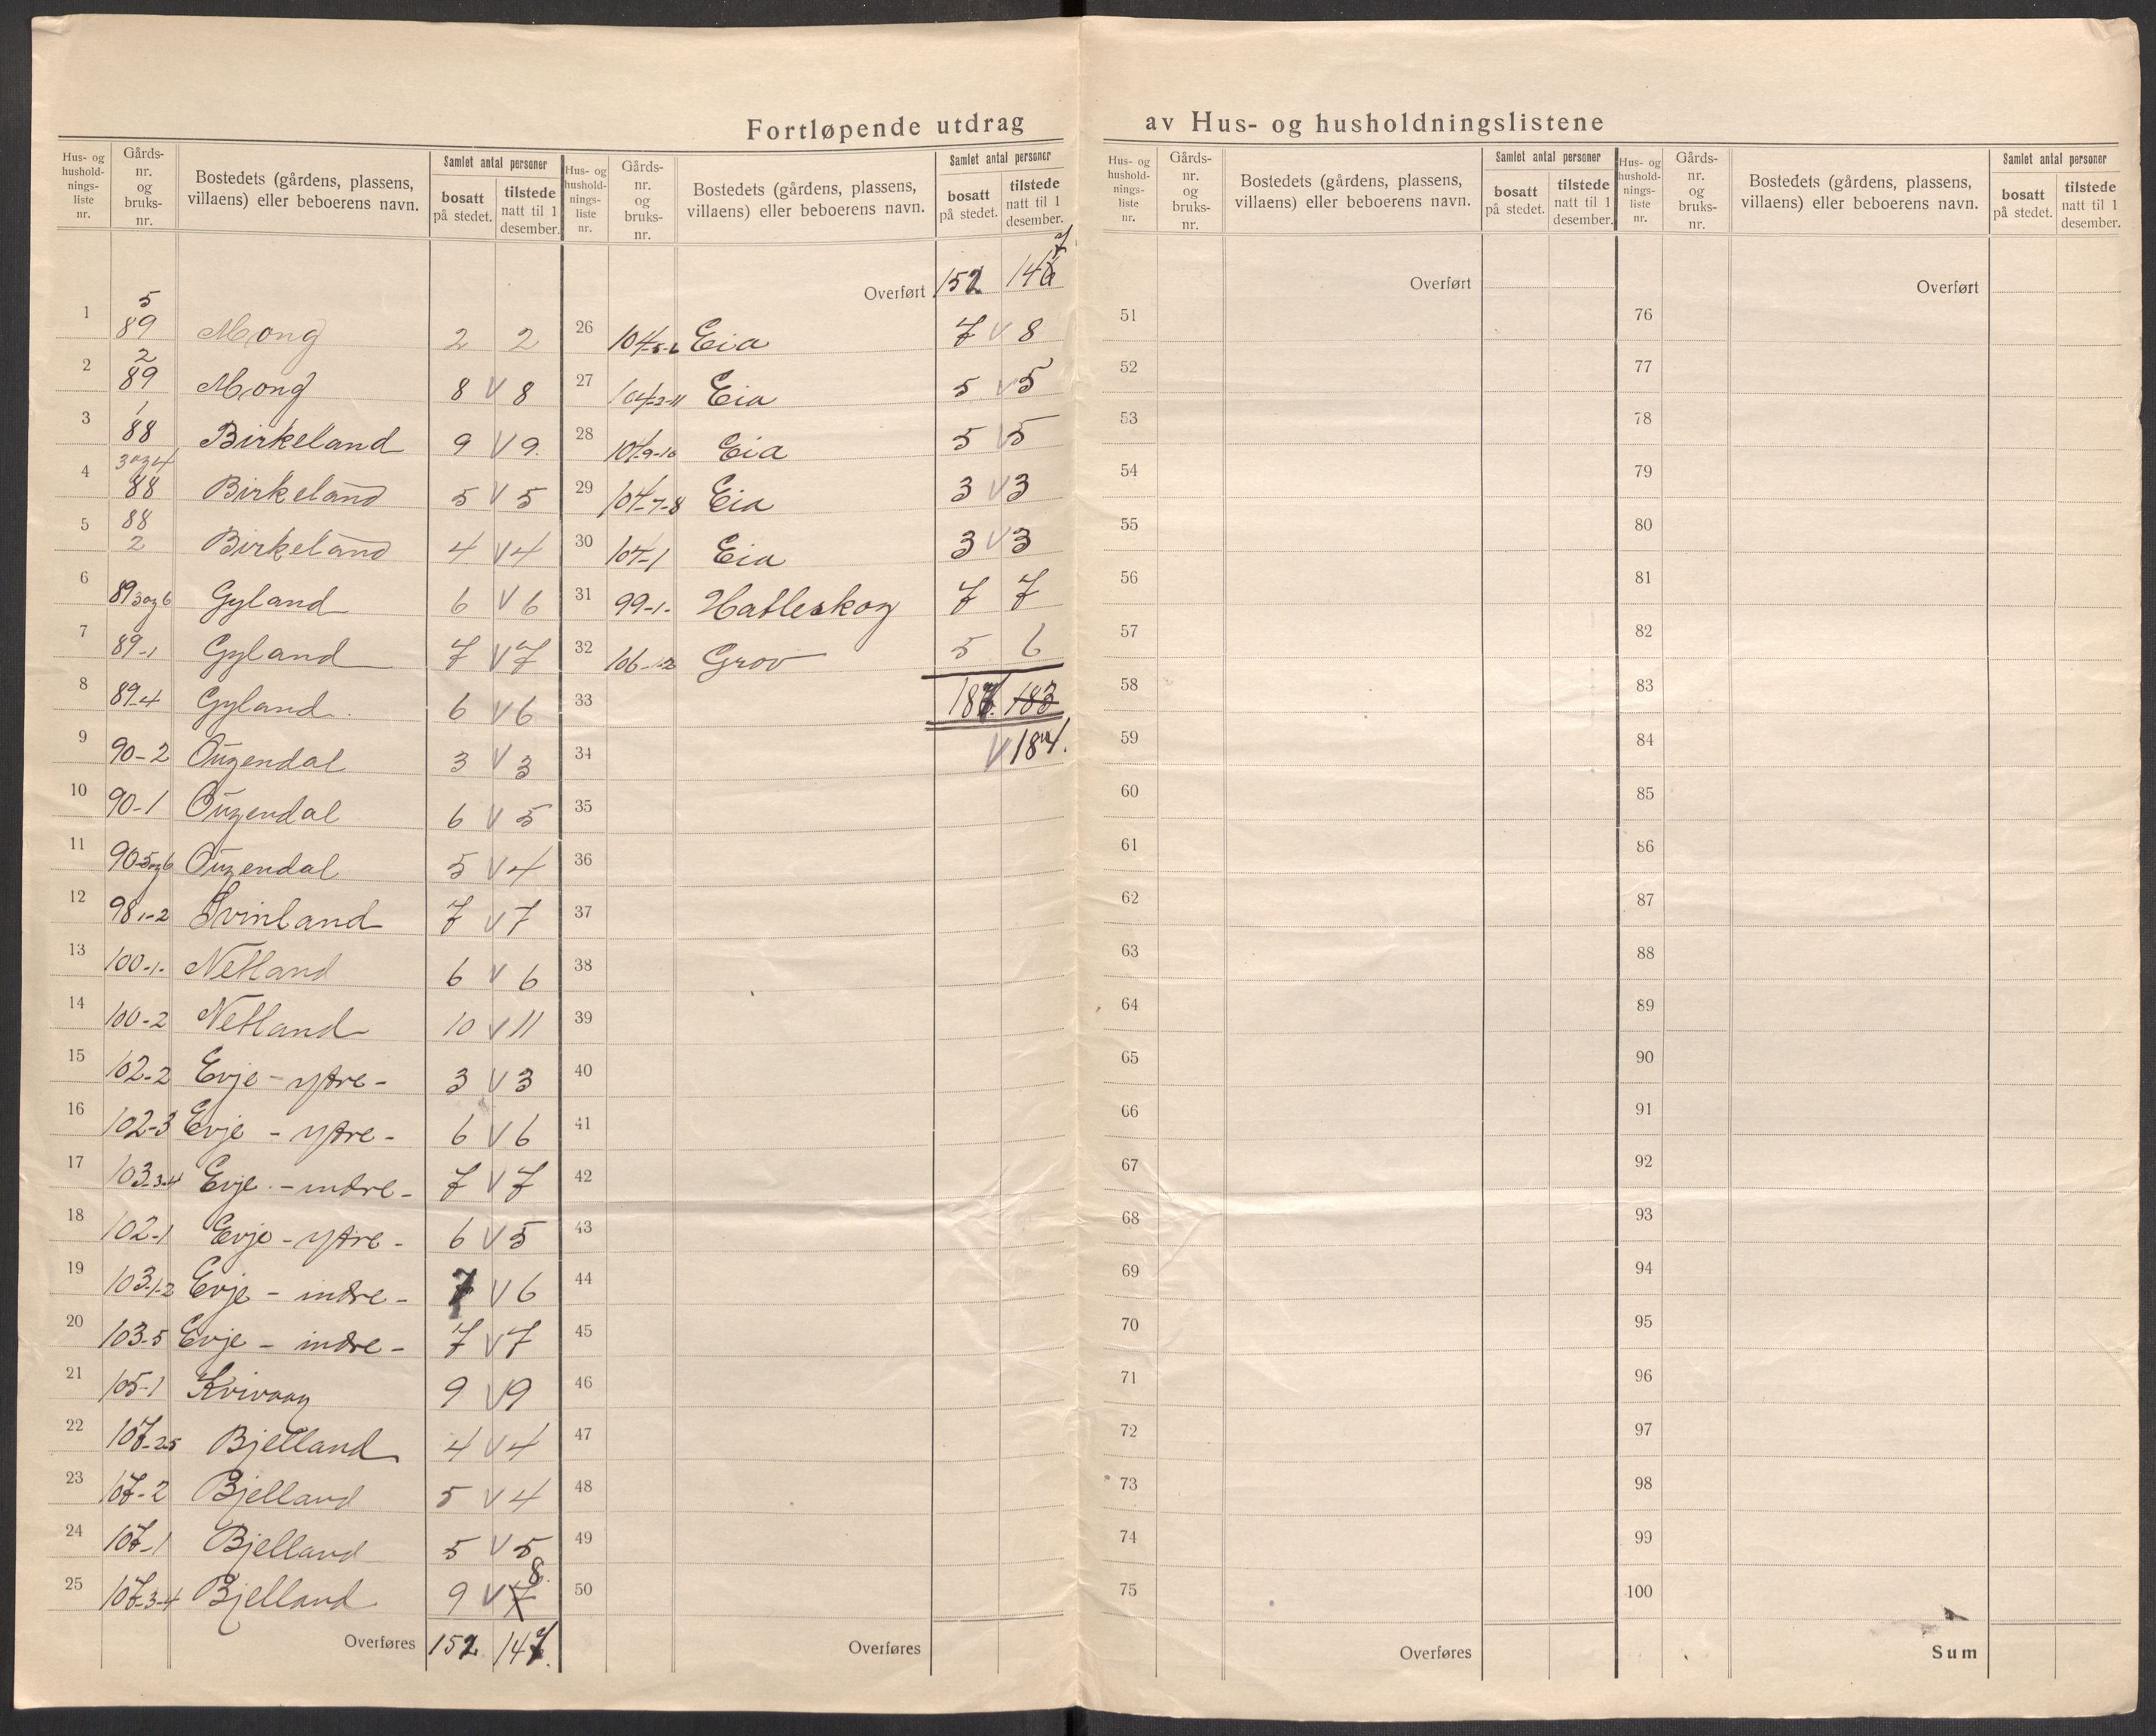 Fortløpende utdrag av Hus- og husholdningslistene
Hus- og hushold-nings-liste nr. | Gårds-nr. og bruks-nr. | Bostedets (gårdens, plassens, villaens) eller beboerens navn. | Samlet antal personer | bosatt på stedet. | tilstede natt til 1 desember.
1 | 5 89 | Mong | 2 | 2
2 | 2 89 | Mong | 8 V 8
3 | 1 88 | Birkeland | 9 V 9.
4 | 3og4 88 | Birkeland | 5 V 5
5 | 88 2 | Birkeland | 4 V 4
6 | 89 3og6 | Gyland | 6 V 6
7 | 89-1 | Gyland | 7 V 7
8 | 89-4 | Gyland. | 6 V 6
9 | 90-2 | Ougendal | 3 V 3
10 | 90-1 | Ougendal | 6 V 5
11 | 90-5og6 | Ougendal | 5 V 4
12 | 98 1-2 | Svinland | 7 V 7
13 | 100-1- | Netland | 6 V 6
14 | 100-2 | Netland | 10 V 11
15 | 102-2 | Evje - ytre - | 3 V 3
16 | 102-3 | Evje - ytre - | 6 V 6
17 | 103-3-4 | Evje - indre - | 7 V 7
18 | 102-1 | Evje - ytre - | 6 V 5
19 | 103-1-2 | Evje - indre - | 7 V 6
20 | 103-5 | Evje - indre - | 7 V 7
21 | 105-1 | Kvivaag | 9 V 9
22 | 107-25 | Bjelland | 4 V 4
23 | 107-2 | Bjelland | 5 V 4
24 | 107-1 | Bjelland | 5 V 5
25 | 107-3-4 | Bjelland | 9 V 7 8.
Overføres 152 147.
Hus- og hushold-nings-liste nr. | Gårds-nr. og bruks-nr. | Bostedets (gårdens, plassens, villaens) eller beboerens navn. | Samlet antal personer | bosatt på stedet. | tilstede natt til 1 desember.
Overført 152 146 7
26 | 104-5-6 | Eia | 7 V 8
27 | 104-2-11 | Eia | 5 V 5
28 | 104-9-10 | Eia | 5 V 5
29 | 104-7-8 | Eia | 3 V 3
30 | 104-1 | Eia | 3 V 3
31 | 99-1- | Hatleskog | 7 | 7
32 | 106-1-2 | Grov | 5 | 6
33 | 187. 183
34 | V 184.
35
36
37
38
39
40
41
42
43
44
45
46
47
48
49
50
Overføres
Hus- og hushold-nings-liste nr. | Gårds-nr. og bruks-nr. | Bostedets (gårdens, plassens, villaens) eller beboerens navn. | Samlet antal personer | bosatt på stedet. | tilstede natt til 1 desember.
Overført
51
52
53
54
55
56
57
58
59
60
61
62
63
64
65
66
67
68
69
70
71
72
73
74
75
Overføres
Hus- og hushold-nings-liste nr. | Gårds-nr. og bruks-nr. | Bostedets (gårdens, plassens, villaens) eller beboerens navn. | Samlet antal personer | bosatt på stedet. | tilstede natt til 1 desember.
Overført
76
77
78
79
80
81
82
83
84
85
86
87
88
89
90
91
92
93
94
95
96
97
98
99
100
Sum